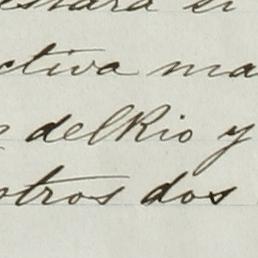 estará el
ctiva ma
delRio y
otros dos